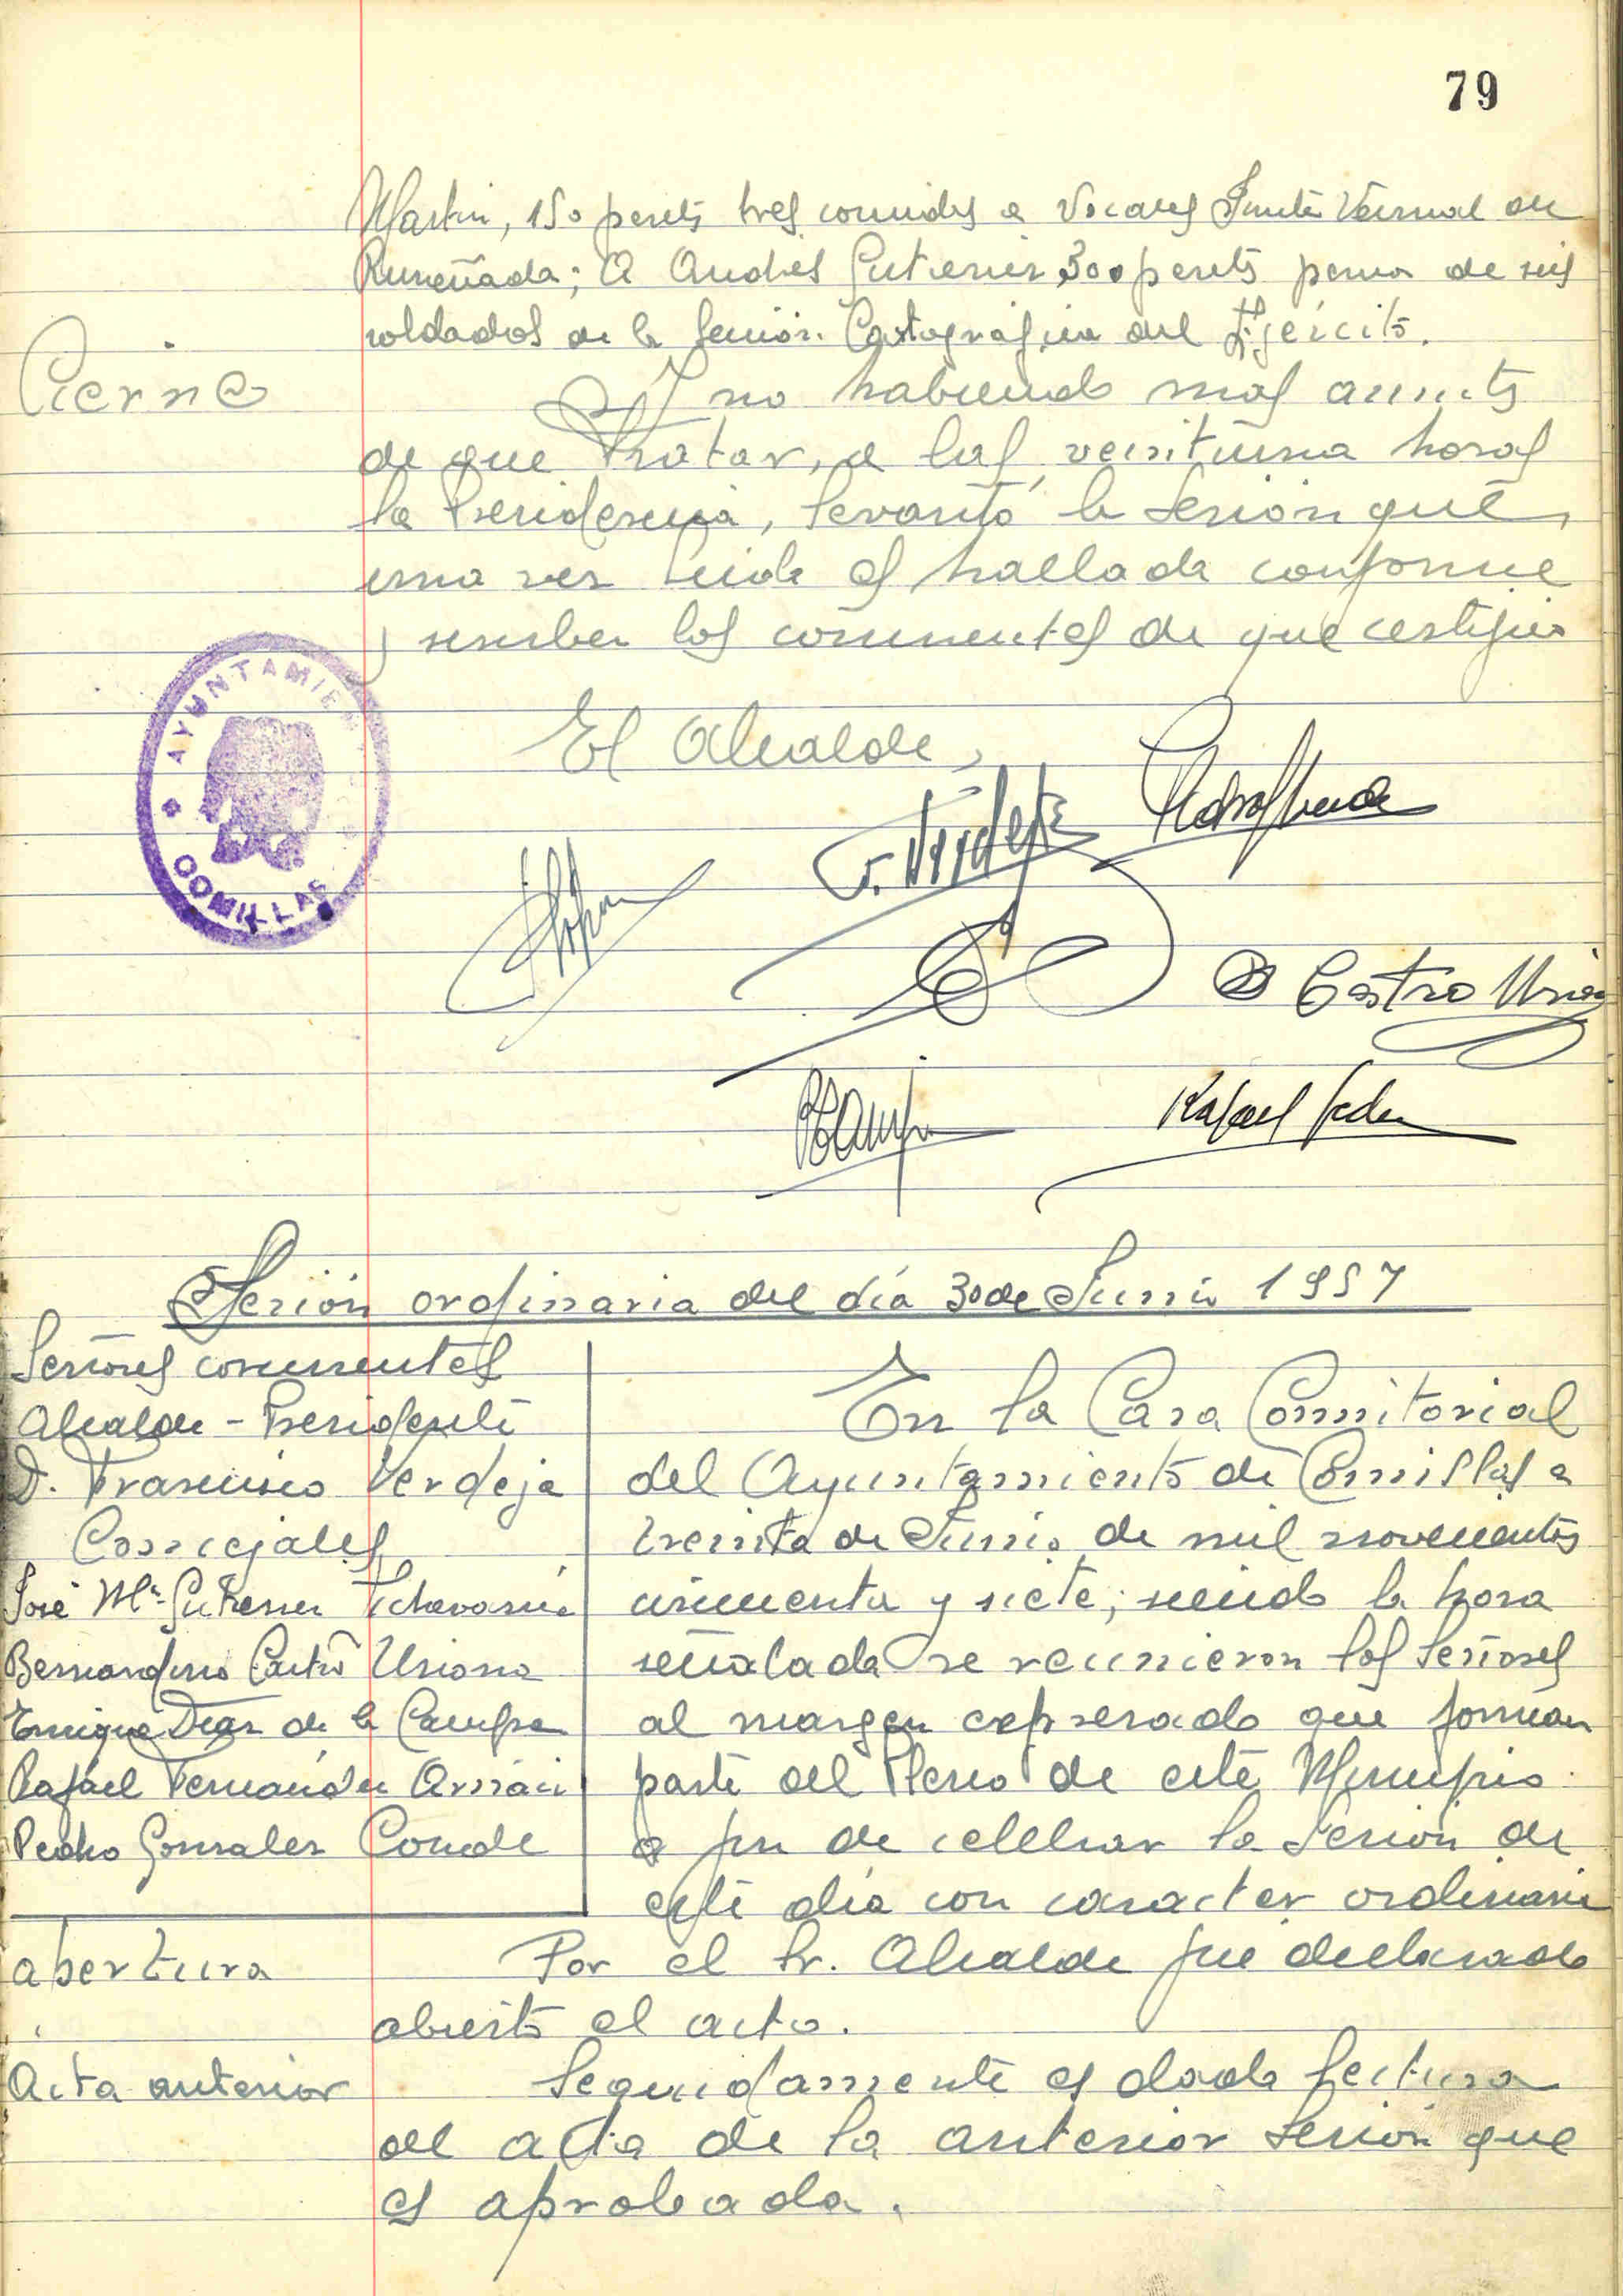 79
Martin, 150 pesets tres comidas a Vocales Junta Vecinal de
Ruiseñada; A Andrés Gutierrez 300 pesets pension de seis
soldados de la Sección Cartografica del Ejército.
Cierre
Y no habiendo mas asunts
de que tratar, a las veintiuna horas
la Presidencia, levantó la sesión que,
una vez leida es hallada conforme
y suscriben los concurrentes de que certifico
El Alcalde,
AYUNTAMIE
COMILLAS
F. Verdeja
B Castro Uriona
Rafael
Sesión ordinaria del día 30 de Junio 1957
Señores concurrentes
Alcalde - Presidente
D. Francisco Verdeja
Concejales
José Mª Gutierrez Echevarria
Bernardino Castro Uriona
Enrique Diaz de la Campa
Rafael Fernandez
Pedro Gonzalez Conde
En la Casa Consitorial
del Ayuntamiento de Comillas a
treinta de Junio de mil novecientos
cincuenta y siete; siendo la hora
señalada se reunieron los Señores
al margen expresado que forman
parte del Pleno de este Municipio
a fin de celebrar la Sesión de
este día con caracter ordinario
abertura
Por el Sr. Alcalde fue declarado
abierto el acto.
Acta anterior
Seguidamente es dada lectura
del acta de la anterior Sesión que
es aprobada.